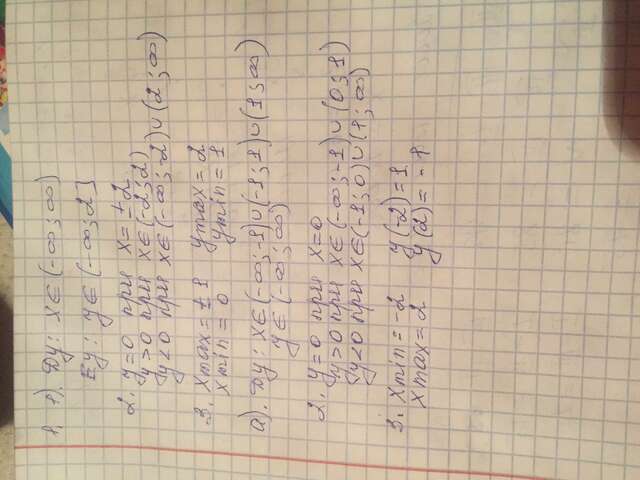 1. 1). Dy: x∈(-∞; ∞)
Ey: y∈(-∞; 2]
2. y=0 при x=±2
y>0 при x∈(-2; 2)
y<0 при x∈(-∞; -2)∪(2; ∞)
3. xmax=±1 ymax=2
xmin=0 ymin=1
2). Dy: x∈(-∞; -1)∪(-1; 1)∪(1; ∞)
y∈(-∞; ∞)
2. y=0 при x=0
y>0 при x∈(-∞; -1)∪(0; 1)
y<0 при x∈(-1; 0)∪(1; ∞)
3. xmin=-2 y(-2)=1
xmax=2 y(2)=-1